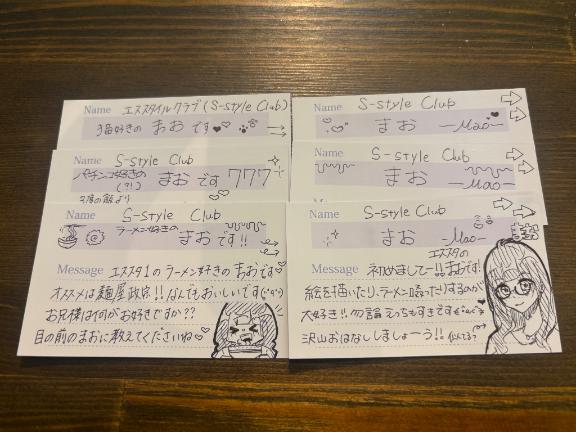 Name エススタイルクラブ(S-style Club)
猫好きの まお です
Name S-style Club
パチンコ好きの まお です 777
(?!)
3度の飯より
Name S-style Club
ラーメン好きの まお です!!
Message エススタ1の ラーメン好きの まおです
オススメは麺屋政宗!!なんでもおいしいです
お兄様は何がお好きですか??
目の前のまおに教えてくださいね
Name S-style Club
まお -Mao-
Name S-style Club
まお -Mao-
Name S-style Club
まお -Mao-
エススタの
Message 初めまして-!!まおです!
絵を描いたり、ラーメン啜ったりするのが
大好き!!勿論えっちもすきです
沢山おはなししましょーう!!
似てる?